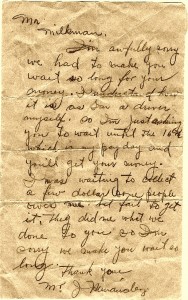 Mr
Milkman.
I'm awfully sorry
we had to make you
wait so long for your
money. I know how
it is as I'm a driver
myself. so I'm just asking
you to wait until the 16th
which is my payday and
you'll get your money.
I was waiting to collect
a few dollars some people
owe me but fail to get
it. they did me what we
done to you so I'm
sorry we make you wait so
long. Thank you
Mr J